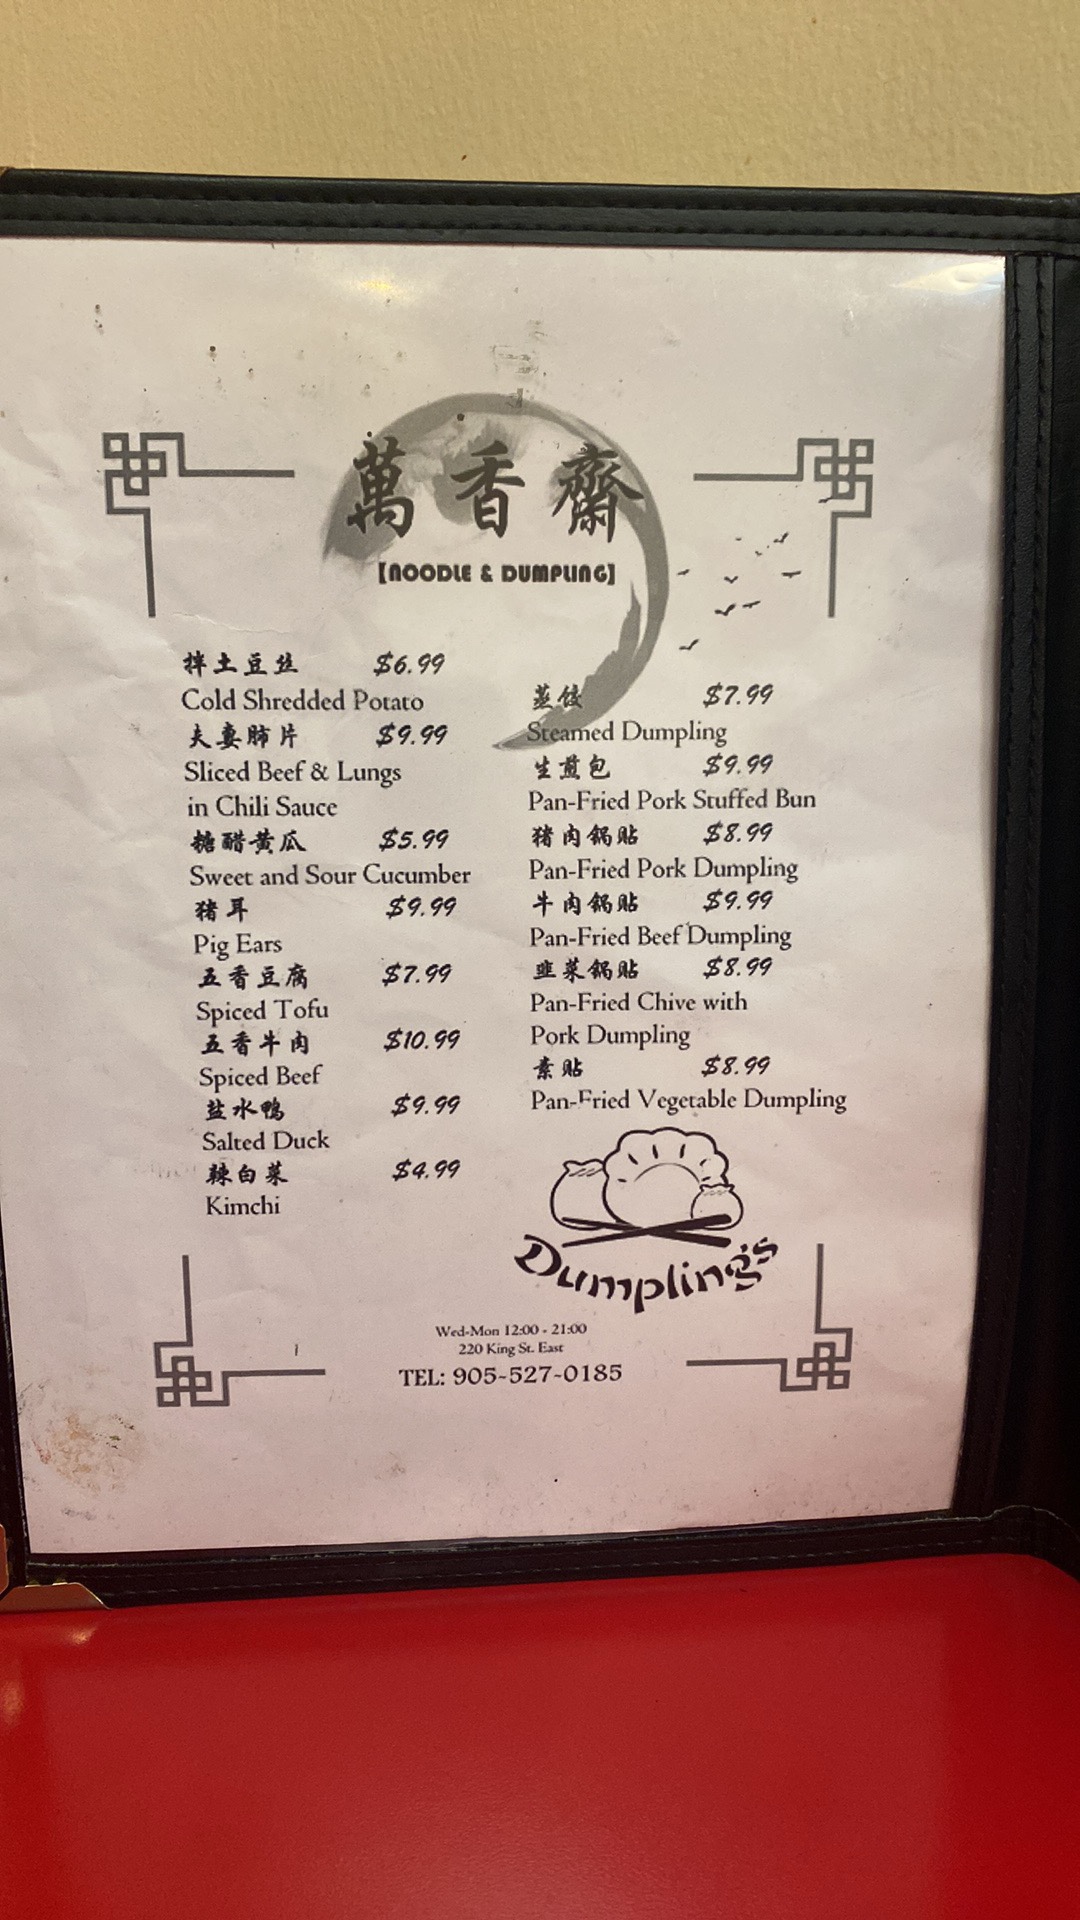 萬香齋
【NOODLE & DUMPLING】
拌土豆丝 $6.99
Cold Shredded Potato
夫妻肺片 $9.99
Sliced Beef & Lungs
in Chili Sauce
糖醋黄瓜 $5.99
Sweet and Sour Cucumber
猪耳 $9.99
Pig Ears
五香豆腐 $7.99
Spiced Tofu
五香牛肉 $10.99
Spiced Beef
盐水鸭 $9.99
Salted Duck
辣白菜 $4.99
Kimchi
蒸饺 $7.99
Steamed Dumpling
生煎包 $9.99
Pan-Fried Pork Stuffed Bun
猪肉锅贴 $8.99
Pan-Fried Pork Dumpling
牛肉锅贴 $9.99
Pan-Fried Beef Dumpling
韭菜锅贴 $8.99
Pan-Fried Chive with
Pork Dumpling
素贴 $8.99
Pan-Fried Vegetable Dumpling
Dumplings
Wed-Mon 12:00 - 21:00
220 King St. East
TEL: 905-527-0185